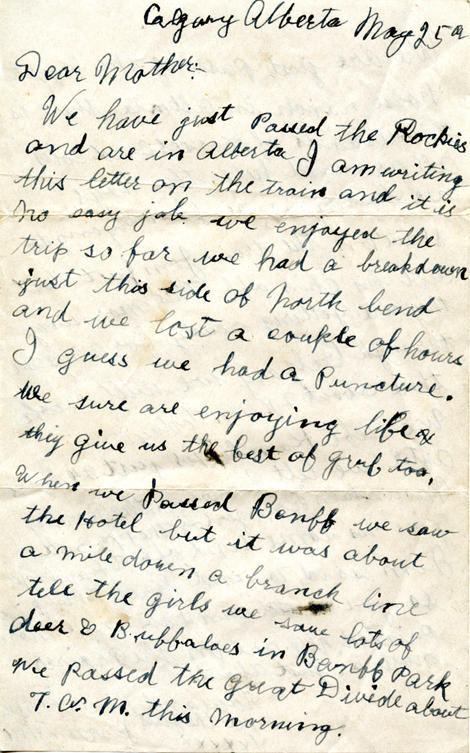 Calgary Alberta May 25th
Dear Mother:-
We have just Passed the Rockies
and are in Alberta I am writing
this letter on the train and it is
no easy job we enjoyed the
trip so far we had a breakdown
just this side of North bend
and we lost a couple of hours
I guess we had a Puncture.
We sure are enjoying life &
they give us the best of grub too.
When we Passed Banff we saw
the Hotel but it was about
a mile down a branch line
tell the girls we saw lots of
deer & Buffaloes in Banff Park
We Passed the great Divide about
7. A. M. this morning.